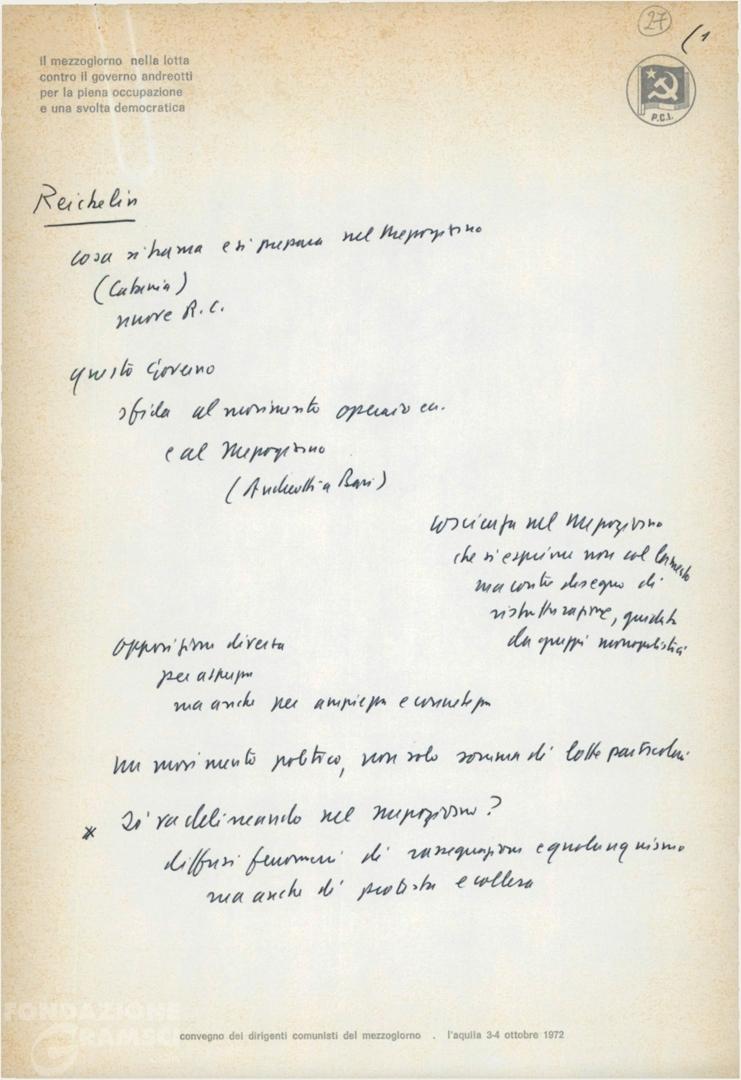 27
(1
il mezzogiorno nella lotta
contro il governo andreotti
per la piena occupazione
e una svolta democratica
P.C.I.
Reichelin
cosa si trama e si prepara nel Mezzogiorno
(Catania)
nuove R.C.
questo Governo
sfida al movimento operaio
e al Mezzogiorno
(Andreotti a Bari)
coscienza nel Mezzogiorno
che si esprime non col lamento
ma contro disegno di
ristrutturazione, guidata
da gruppi monopolistici
opposizione diversa
per asprezza
ma anche per ampiezza e concretezza
un movimento politico, non solo somma di lotte particolari
* Si va delineando nel Mezzogiorno?
diffusi fenomeni di rassegnazione e qualunquismo
ma anche di protesta e collera
FONDAZIONE
GRAMSCI
convegno dei dirigenti comunisti del mezzogiorno . l'aquila 3-4 ottobre 1972